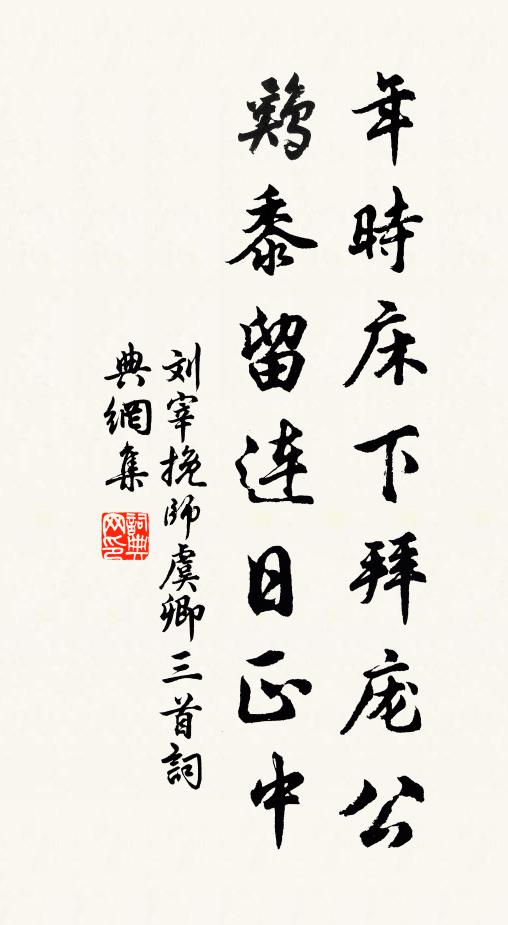 年時床下拜庞公
鷄黍留連日正中
刘宰挽師虞卿三首詞
典網集
詞典网印